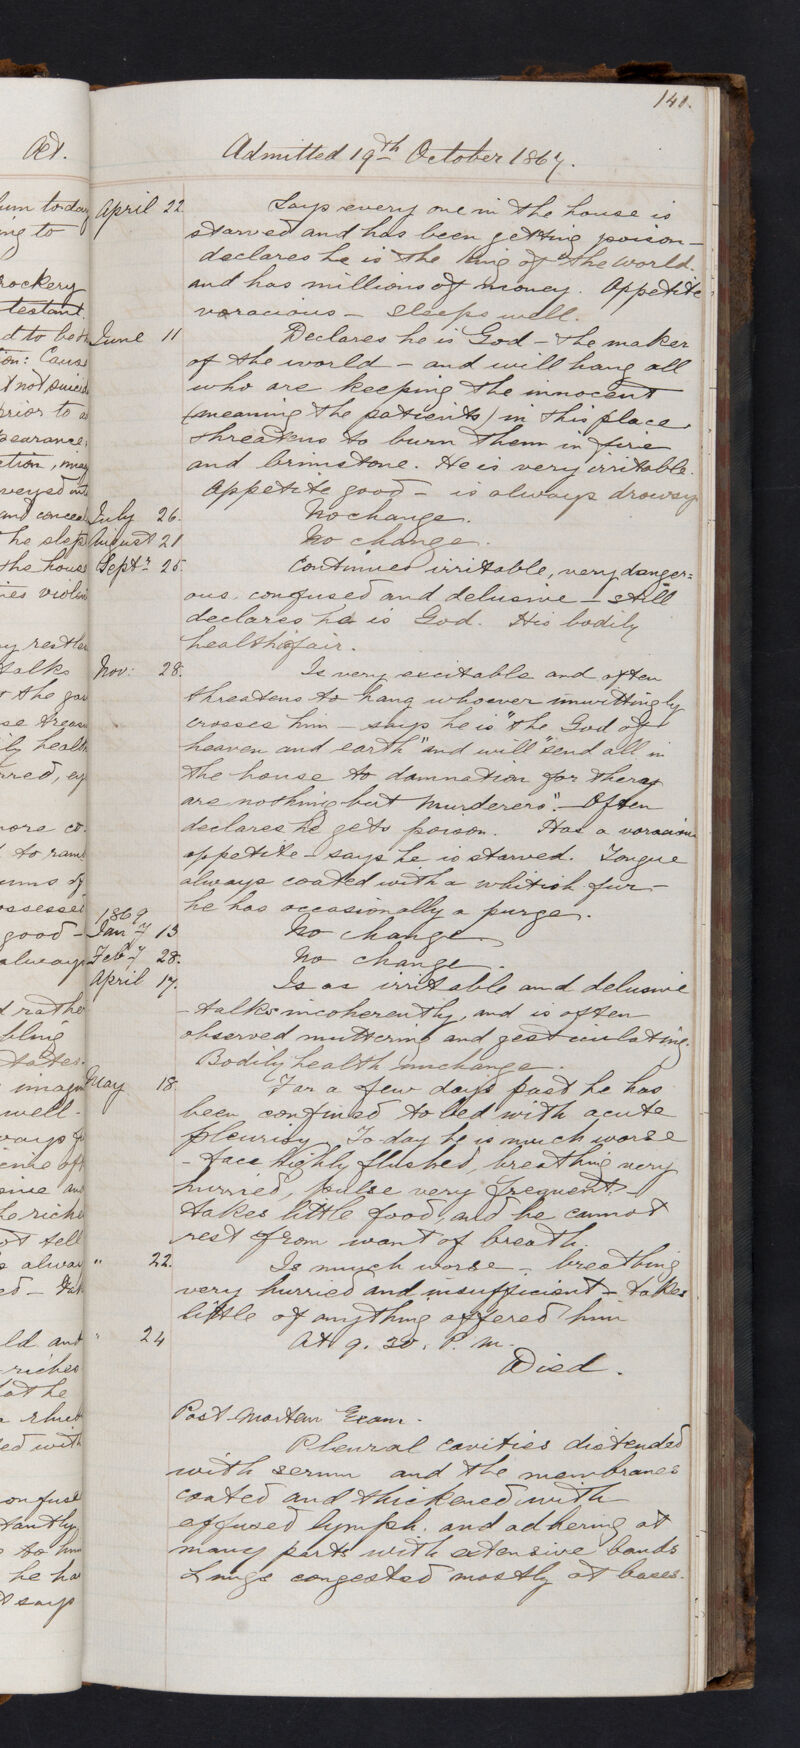 141.
Admitted 19th October 1867.
April 22 Says every one in the house is
starved and has been getting poison –
declares he is the King of the World.
and has millions of money. Appetite
voracious – Sleeps well.
June 11 Declares he is God – the maker
of the world – and will hang all
who are keeping the innocent
(meaning the patients) in this place
threatens to burn them in fire
and brimstone. He is very irritable.
Appetite good – is always drowsy
July 26. No change.
August 21 No change.
Septr 25. Continues irritable, very danger=
ous, confused and delusive – still
declares he is God. His bodily
health is fair.
Nov: 28. Is very excitable and often
threatens to hang whoever unwittingly
crosses him – says he is "the God of
heaven and earth" and will "send all in
the house to damnation for they
are nothing but murderers". – Often
declares he gets poison. Has a voracious
appetite – says he is starved. Tongue
always coated with a whitish fur –
he has occasionally a purge.
1869
Jany 13 No change.
Feby 28. No change.
April 17. Is as irritable and delusive
– talks incoherently, and is often
observed muttering and gesticulating.
Bodily health unchange.
May 18. For a few days past he has
been confined to bed with acute
pleurisy. To day he is much worse
– face highly flushed, breathing very
hurried, pulse very frequent –
takes little food, and he cannot
rest from want of breath.
" 22. Is much worse – breathing
very hurried and insufficient – takes
little of anything offered him
" 24 At 9. 30. P. m.
Died.
Post Mortem Exam.
Pleural cavities distended
with serum and the membranes
coated and thickened with
effused lymph, and adhering at
many parts with extensive bands
Lungs congested mostly at bases.